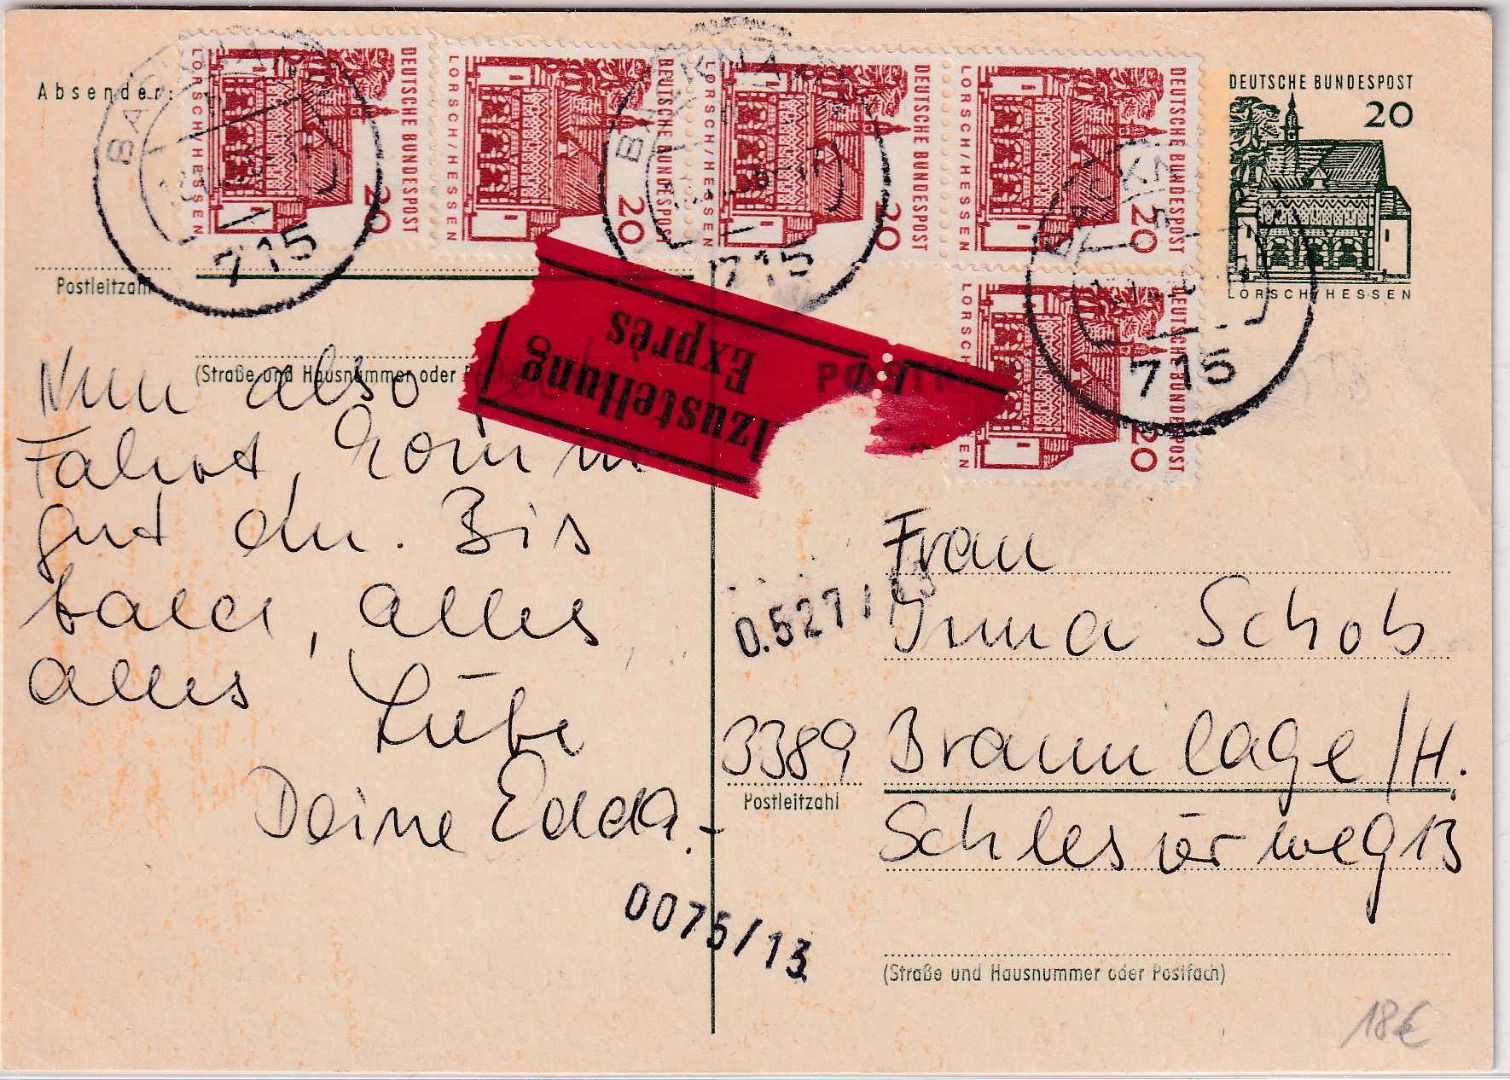 Absender:
DEUTSCHE BUNDESPOST
20
LORSCH/HESSEN
DEUTSCHE BUNDESPOST
20
LORSCH/HESSEN
DEUTSCHE BUNDESPOST
20
LORSCH/HESSEN
DEUTSCHE BUNDESPOST
20
LORSCH/HESSEN
DEUTSCHE BUNDESPOST
20
LORSCH/HESSEN
DEUTSCHE BUNDESPOST
20
LORSCH/HESSEN
BACKNANG
715
BACKNANG
715
BACKNANG
715
Postleitzahl
(Straße und Hausnummer oder
lzustellung
Exprès
POSTK
Nun also
Fahrt, komm
gut an. Bis
bald, alles
alles Liebe
Deine Edda.-
Frau
Irma Schob
3389 Braunlage/H.
Postleitzahl
Schlesierweg 13
(Straße und Hausnummer oder Postfach)
0.527/13
0075/13
18€